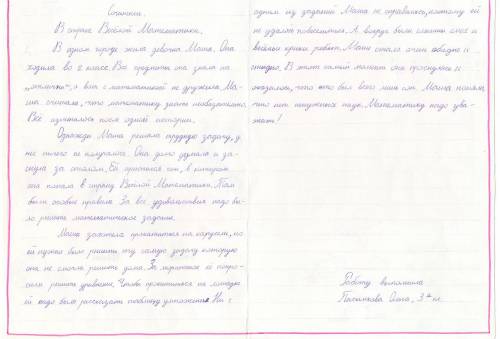 Сочинение.
В стране Весёлой Математики.
В одном городе жила девочка Маша. Она
ходила во 2 класс. Все предметы она знала на
„отлично“, а вот с математикой не дружила. Ма-
ша считала, что математику знать необязательно.
Всё изменилось после одной истории.
Однажды Маша решала трудную задачу, у
неё ничего не получалось. Она долго думала и за-
снула за столом. Ей приснился сон, в котором
она попала в страну Весёлой Математики. Там
были особые правила. За все удовольствия надо бы-
ло решить математическое задание.
Маша захотела прокатиться на карусели, но
ей нужно было решить ту самую задачу которую
она не смогла решить дома. За мороженое её попро-
сили решить уравнение. Чтобы прокатиться на лошадке
ей надо было рассказать таблицу умножения. Ни с
одним из заданий Маша не справилась, поэтому ей
не удалось повеселиться. А вокруг были слышны смех и
весёлые крики ребят. Маше стало очень обидно и
стыдно. В этот самый момент она проснулась и
оказалось, что это был всего лишь сон. Маша поняла,
что нет ненужных наук. Математику надо ува-
жать!
Работу выполнила
Ольга, 3 кл.